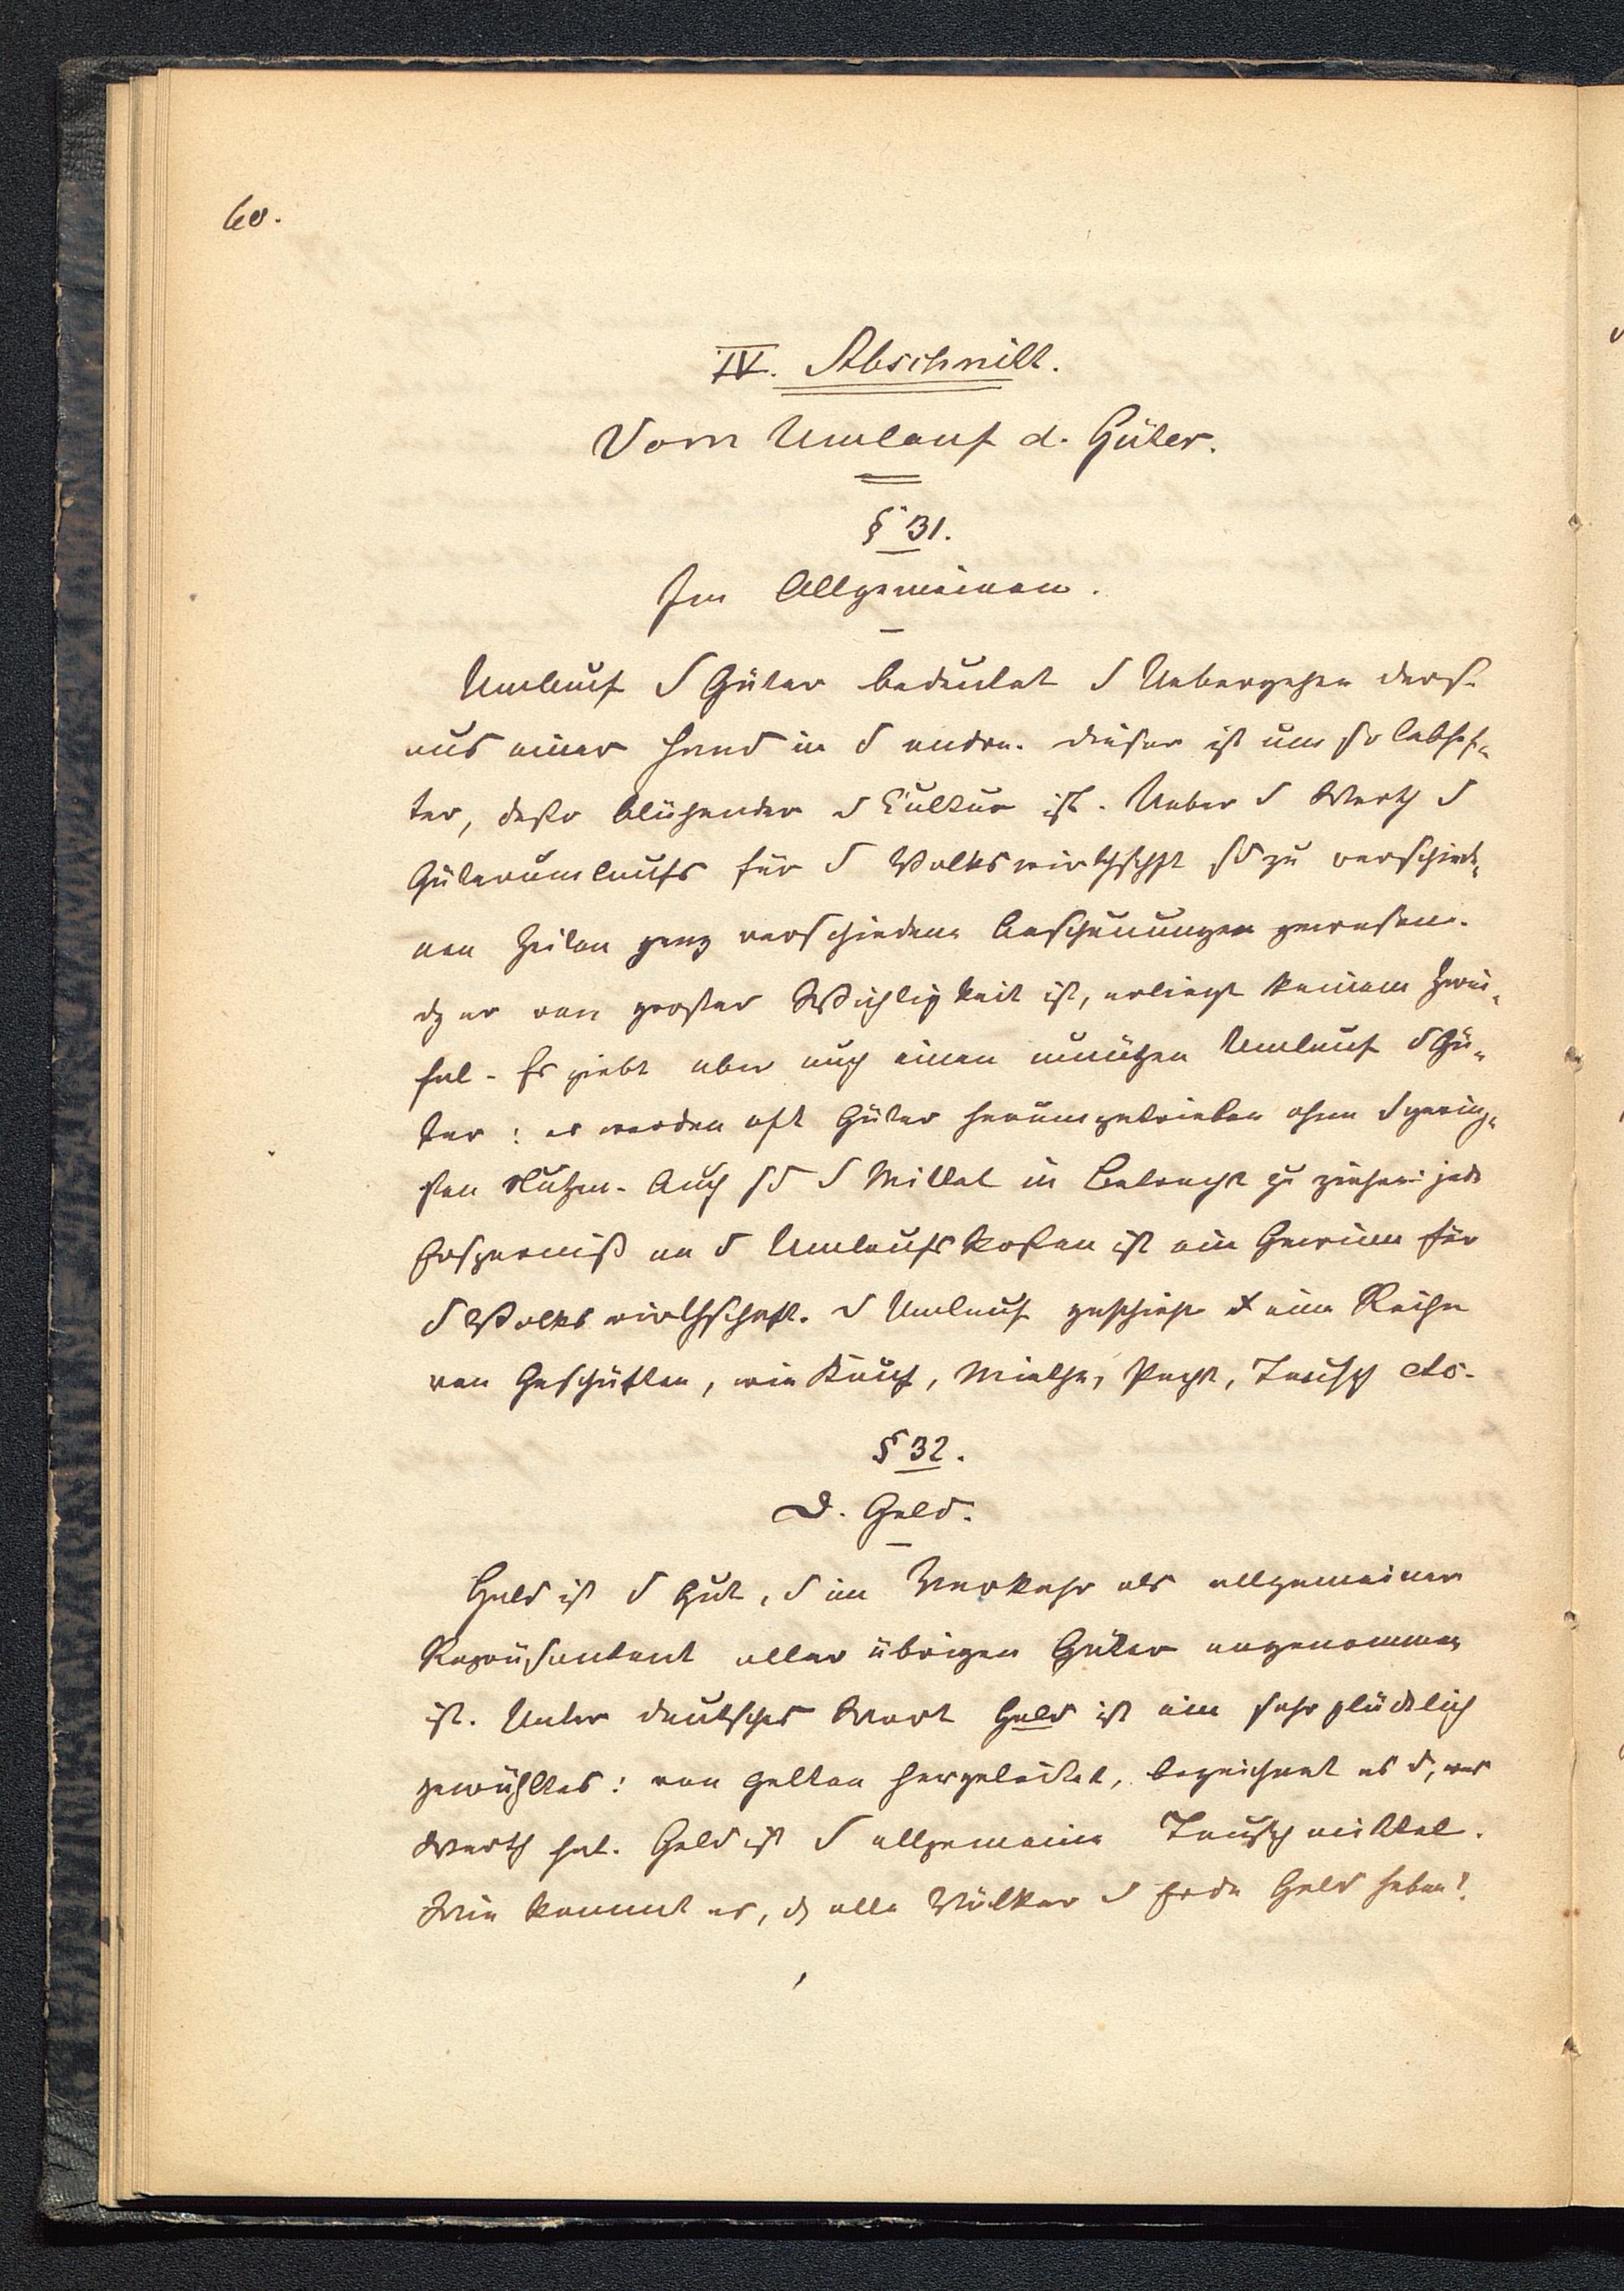 60.
IV. Abschnitt.
Vom Umlauf d. Güter.
§ 31.
Im Allgemeinen.
Umlauf d Güter bedeutet d Uebergehen ders.
aus einer Hand in d andre. Dieser ist um so lebhaf-
ter, desto blühender d Cultur ist. Ueber d Werth d
Güterumlaufs für d Volkswirthschft sd zu verschiede-
nen Zeiten ganz verschiedene Anschauungen gewesen.
dß er von großer Wichtigkeit ist, erliegt keinem Zwei-
fel. Es giebt aber auch einen unnützen Umlauf d Gü-
ter: es werden oft Güter herumgetrieben ohne d gering-
sten Nutzen. Auch sd d Mittel in Betracht zu ziehen: jede
Ersparniß an d Umlaufskosten ist ein Gewinn für
d Volkswirthschaft. d Umlauf geschieht eine Reihe
von Geschäften, wie Kauf, Miethe, Pacht, Tausch etc.
§ 32.
D. Geld.
Geld ist d Gut, d im Verkehr als allgemeiner
Repräsentant aller übrigen Güter angenommen
ist. Unser deutsches Wort Geld ist ein sehr glücklich
gewähltes: von gelten hergeleitet, bezeichnet es d, was
Werth hat. Geld ist d allgemeine Tauschmittel.
Wie kommt es, dß alle Völker d Erde Geld haben?